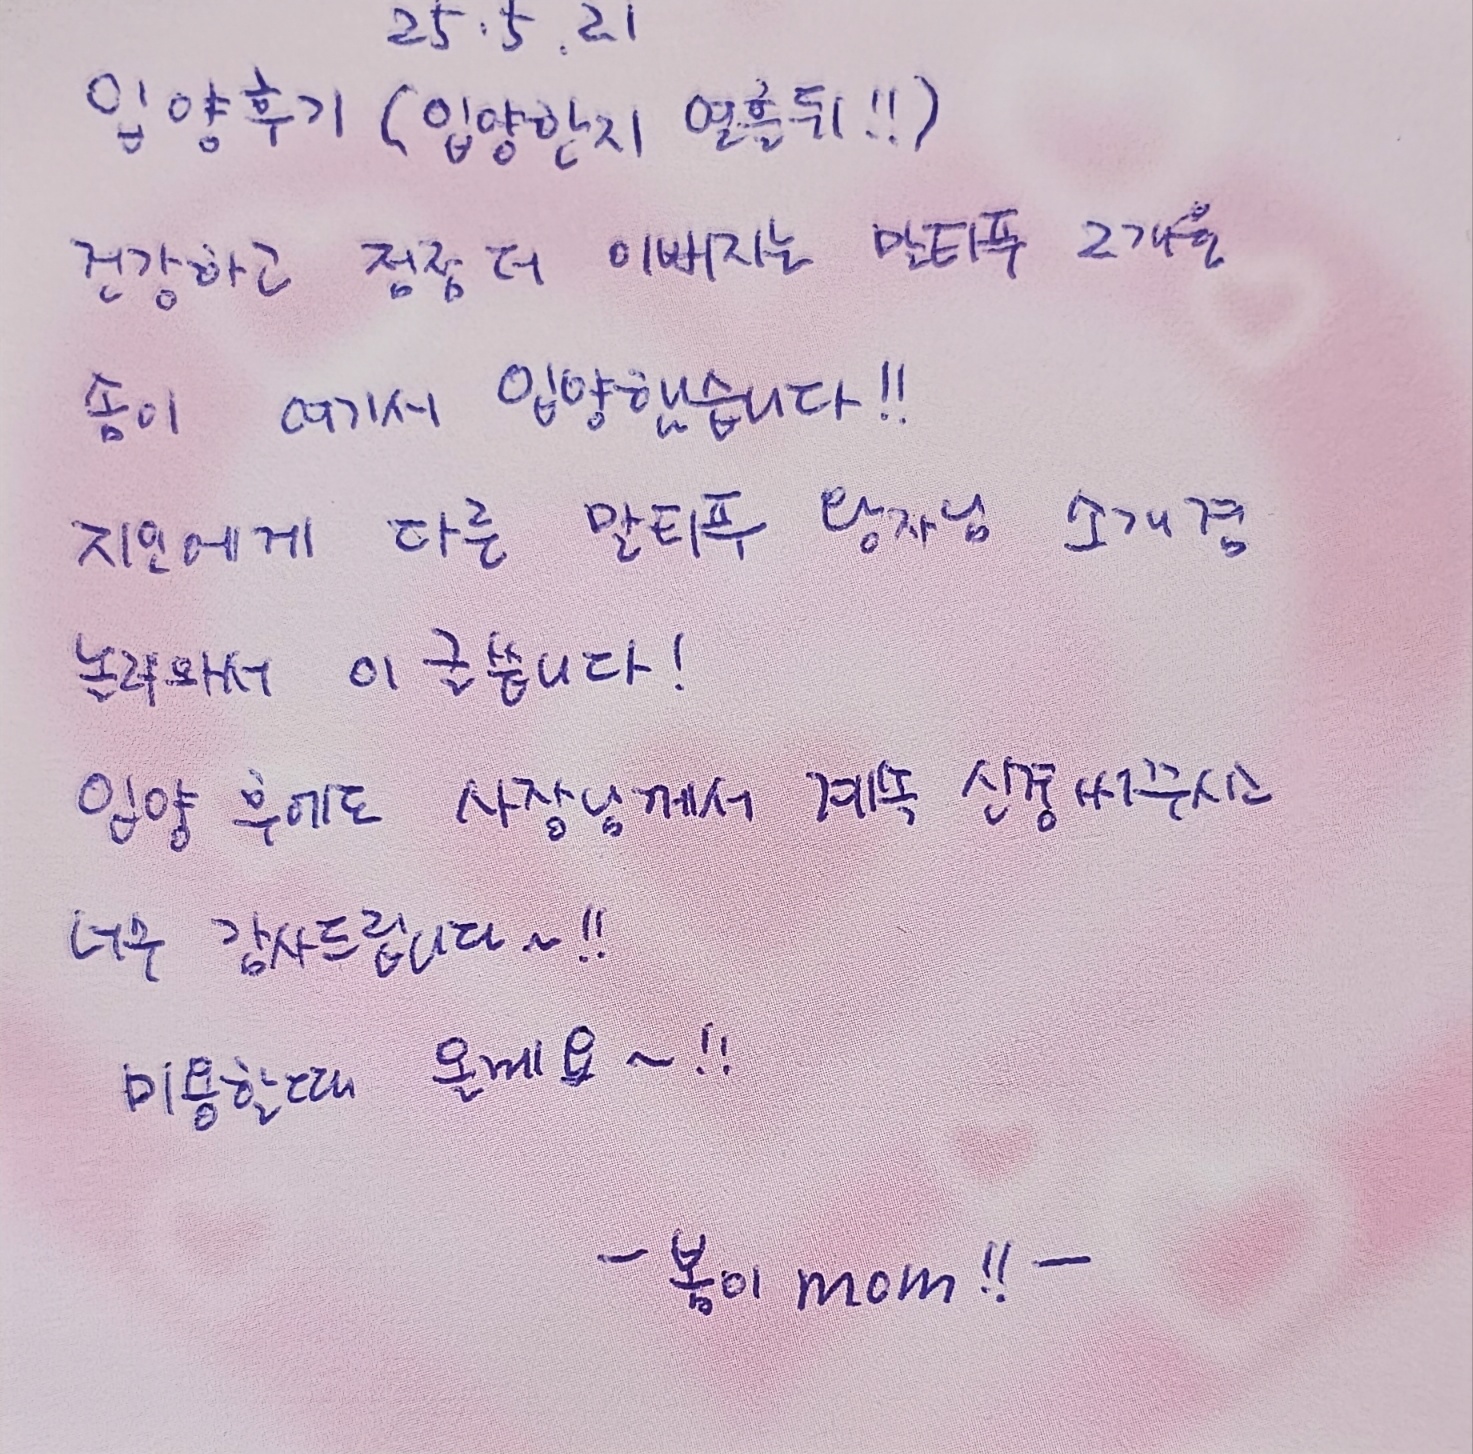 25.5.21
입양후기 (입양한지 열흘뒤!!)
건강하고 점점 더 이뻐지는 말티푸 2개월
솜이 여기서 입양했습니다!!
지인에게 다른 말티푸 왕자님 소개겸
놀러와서 이 글씁니다!
입양 후에도 사장님께서 계속 신경써주시고
너무 감사드립니다~!!
미용할때 올께요~!!
- 봄이 mom!! -